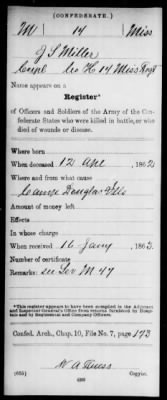 (CONFEDERATE.)
M 14 Miss
J S Miller
Corpl Co H 14 Miss Regt
Name appears on a
Register*
of Officers and Soldiers of the Army of the Confederate States who were killed in battle, or who died of wounds or disease.
Where born
When deceased 12 Apl , 1862
Where and from what cause
Camp Douglas Ills
Amount of money left
Effects
In whose charge
When received 16 Jany , 1863
Number of certificate
Remarks: see Let M 47
*This register appears to have been compiled in the Adjutant and Inspector General's Office from returns furnished by Hospitals and by Regimental and Company Officers.
Confed. Arch., Chap. 10, File No. 7, page 173
(635)
Copyist.